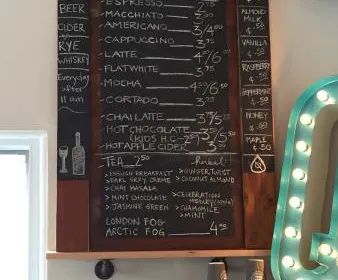 BEER
CIDER
RYE
WHISKEY
Everyday
after
11 am
ESPRESSO 2.75
MACCHIATO 3.25
AMERICANO 3/4.00
CAPPUCCINO 3.75
LATTE 4.00/5.00
FLAT WHITE 3.75
MOCHA 4.50/5.50
CORTADO 3.25
CHAI LATTE 3.75/5.75
HOT CHOCOLATE
(KIDS H.C-2.50)
HOT APPLE CIDER
TEA 2.50
> ENGLISH BREAKFAST
> EARL GREY CREME
> CHAI MASALA
> MINT CHOCOLATE
> JASMINE GREEN
Herbal
> GINGER TWIST
> COCONUT ALMOND
> CELEBRATION
> CHAMOMILE
> MINT
LONDON FOG
ARCTIC FOG 4.50
ALMOND
MILK
VANILLA
.50
RASPBERRY
.50
PEPPERMINT
.50
HONEY
.50
MAPLE
.50